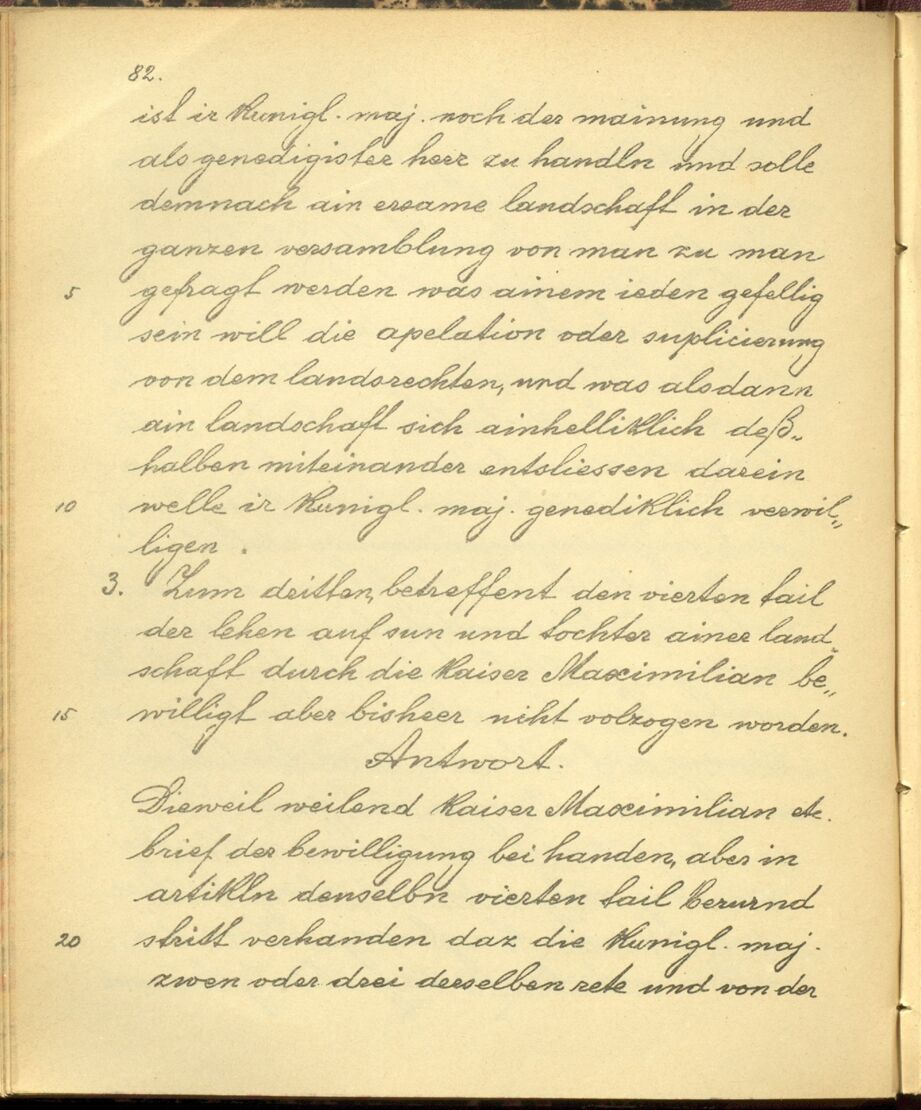 82.
ist ir kunigl. maj. noch der mainung und
als genedigister heer zu handln und solle
demnach ain ersame landschaft in der
ganzen versamblung von man zu man
5 gefragt werden was ainem ieden gefellig
sein will die apelation oder suplicierung
von dem landsrechten, und was alsdann
ain landschaft sich ainhelliklich deß„
halben miteinander entsliessen darein
10 welle ir kunigl. maj. genediklich verwil„
ligen.
3. Zum dritten, betreffent den vierten tail
der lehen auf sun und tochter ainer land„
schaft durch die kaiser Maximilian be„
15 willigt aber bisheer niht volzogen worden.
Antwort.
Dieweil weilend kaiser Maximilian etc.
brief der bewilligung bei handen, aber in
artikln denselbn vierten tail berurnd
20 stritt verhanden daz die kunigl. maj.
zwen oder drei derselben rete und von der